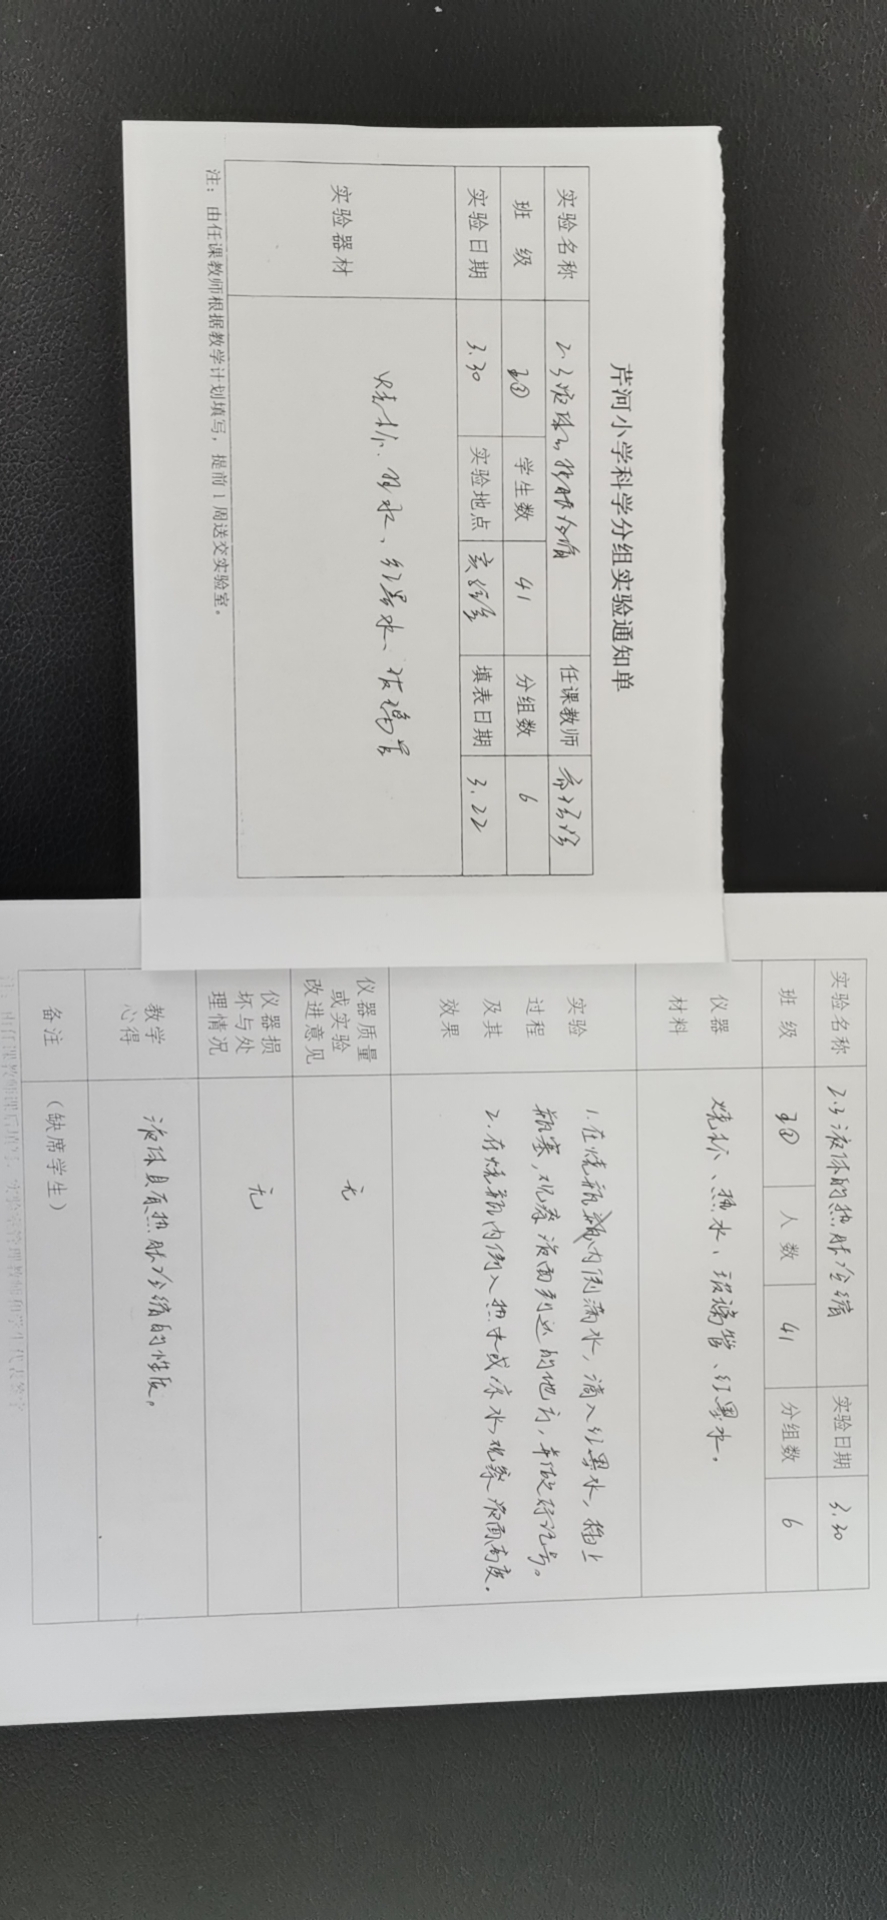 芹河小学科学分组实验通知单
实验名称 2.3液体的热胀冷缩 任课教师
班 级 三④ 学生数 41 分组数 6
实验日期 3.30 实验地点 实验室 填表日期 3.22
实验器材 烧杯、热水、红墨水、玻璃管
注：由任课教师根据教学计划填写，提前1周送交实验室。
实验名称 2.3液体的热胀冷缩 实验日期 3.30
班 级 三④ 人数 41 分组数 6
仪器材料 烧杯、热水、玻璃管、红墨水。
实验过程及其效果 1.在烧瓶内倒满水，滴入红墨水，塞上
瓶塞，观察液面到达的地方，并做好记号。
2.在烧瓶内倒入热水或凉水，观察液面高度。
仪器质量或实验改进意见 无
仪器损坏与处理情况 无
教学心得 液体具有热胀冷缩的性质。
备注 （缺席学生）